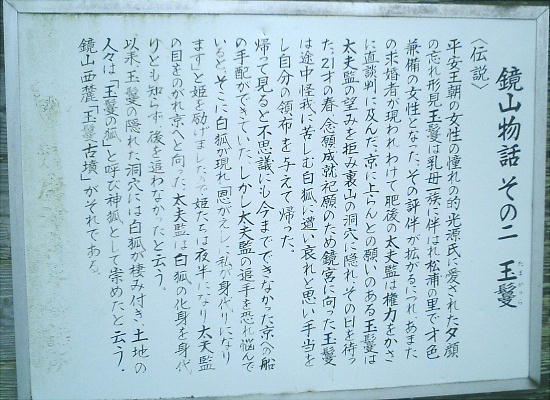 鏡山物語 その二 玉鬘
たまかづら
〈伝説〉
平安王朝の女性の憧れの的光源氏に愛された夕顔
の忘れ形見玉鬘は乳母一族に伴はれ松浦の里で才色
兼備の女性となった。その評伴が拡がるにつれ、あまた
の求婚者が現われわけて肥後の太夫監は権力をかさ
に直談判に及んだ、京に上らんとの願いのある玉鬘は
太夫監の望みを拒み裏山の洞穴に隠れ、その日を待っ
た。21才の春、念願成就祀願のため鏡宮に向った玉鬘
は途中怪我に苦しむ白狐に遭い哀れと思い手当を
し自分の領布を与えて帰った、
帰って見ると不思議にも今までできなかった京への船
の手配ができていた。しかし太夫監の追手を恐れ悩んで
いると、そこに白狐が現れ「恩がえしに私が身代りになり
ます」と姫を励ましたので姫たちは夜半になり太夫監
の目をのがれ京へと向った、太夫監は白狐の化身を身代
りとも知らず後を追わなかったと云う、
以来、玉鬘の隠れた洞穴には白狐が棲み付き、土地の
人々は「玉鬘の狐」と呼び神狐として崇めたと云う・
鏡山西麓「玉鬘古墳」がそれである。